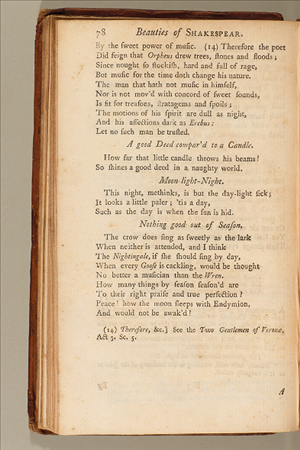 78 Beauties of SHAKESPEAR.
By the ſweet power of muſic. (14) Therefore the poet
Did feign that Orpheus drew trees, ſtones and floods;
Since nought ſo ſtockiſh, hard and full of rage,
But muſic for the time doth change his nature.
The man that hath not muſic in himſelf,
Nor is not mov'd with concord of ſweet ſounds,
Is fit for treaſons, ſtratagems and ſpoils;
The motions of his ſpirit are dull as night,
And his affections dark as Erebus:
Let no ſuch man be truſted.
A good Deed compar'd to a Candle.
How far that little candle throws his beams!
So ſhines a good deed in a naughty world.
Moon-light-Night.
This night, methinks, is but the day-light ſick;
It looks a little paler; 'tis a day,
Such as the day is when the ſun is hid.
Nothing good out of Seaſon.
The crow does ſing as ſweetly as the lark
When neither is attended, and I think
The Nightingale, if ſhe ſhould ſing by day,
When every Gooſe is cackling, would be thought
No better a muſician than the Wren.
How many things by ſeaſon ſeaſon'd are
To their right praiſe and true perfection?
Peace! how the moon ſleeps with Endymion,
And would not be awak'd!
(14) Therefore, &c.] See the Two Gentlemen of Verona,
Act 3. Sc. 5.
A